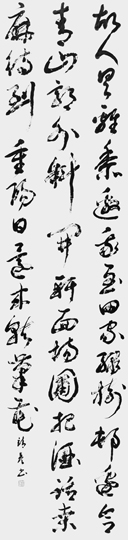 故人具雞黍邀我至田家綠樹村邊合
青山郭外斜開軒面場圃把酒話桑
麻待到重陽日還來就菊花